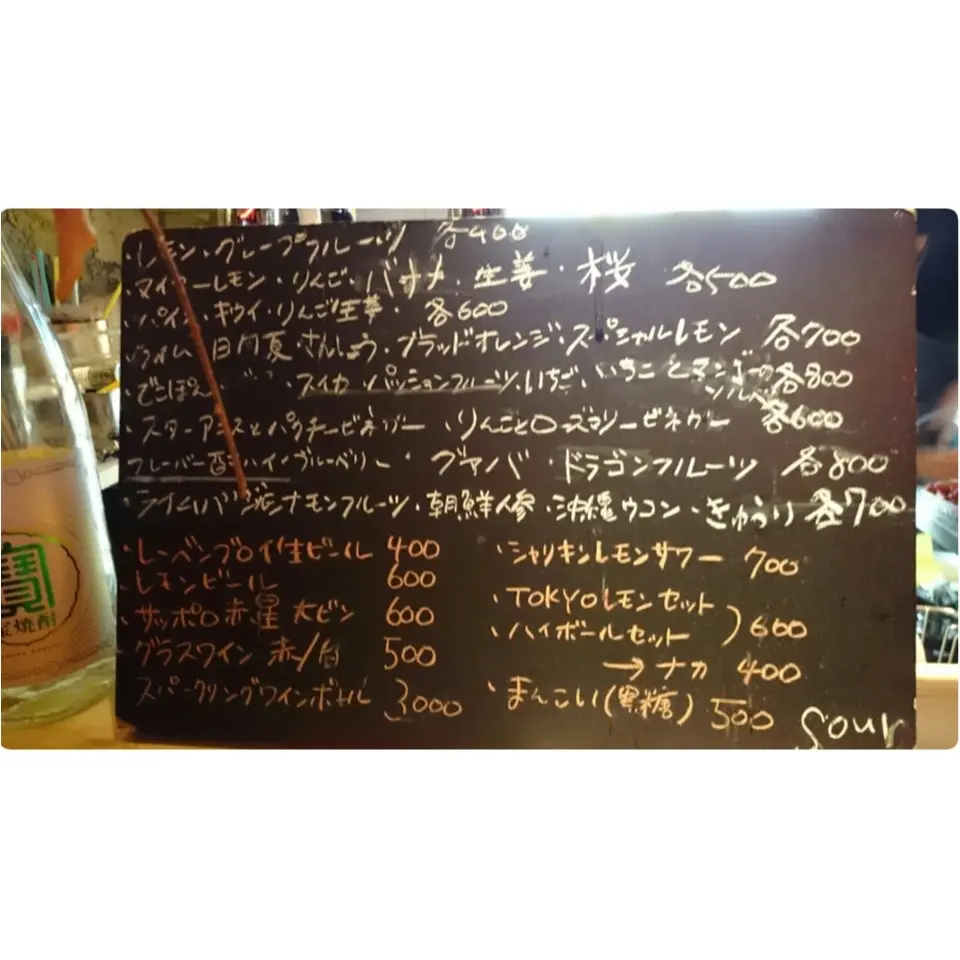 ・レモン・グレープフルーツ 各400
・マイヤーレモン・りんご・バナナ・生姜・桜 各500
・パイン・キウイ・りんご生姜・ 各600
・ライム 日向夏 さんしょう・ブラッドオレンジ・スペシャルレモン 各700
・でこぽん スイカ パッションフルーツ・いちご・いちごとマンゴーの 各800
・スターアニスとパクチービネガー・りんごとローズマリービネガー 各600
フレーバー酎ハイ・ブルーベリー・グァバ・ドラゴンフルーツ 各800
フルーツ・朝鮮人参・沖縄ウコン・きゅうり 各700
生ビール 400
・レモンビール 600
・サッポロ赤星 大ビン 600
・グラスワイン 赤/白 500
スパークリングワインボトル 3000
・シャリキンレモンサワー 700
・TOKYOレモンセット
・ハイボールセット )600
→ナカ 400
・まっこい(黒糖) 500
Sour
寶
焼酎